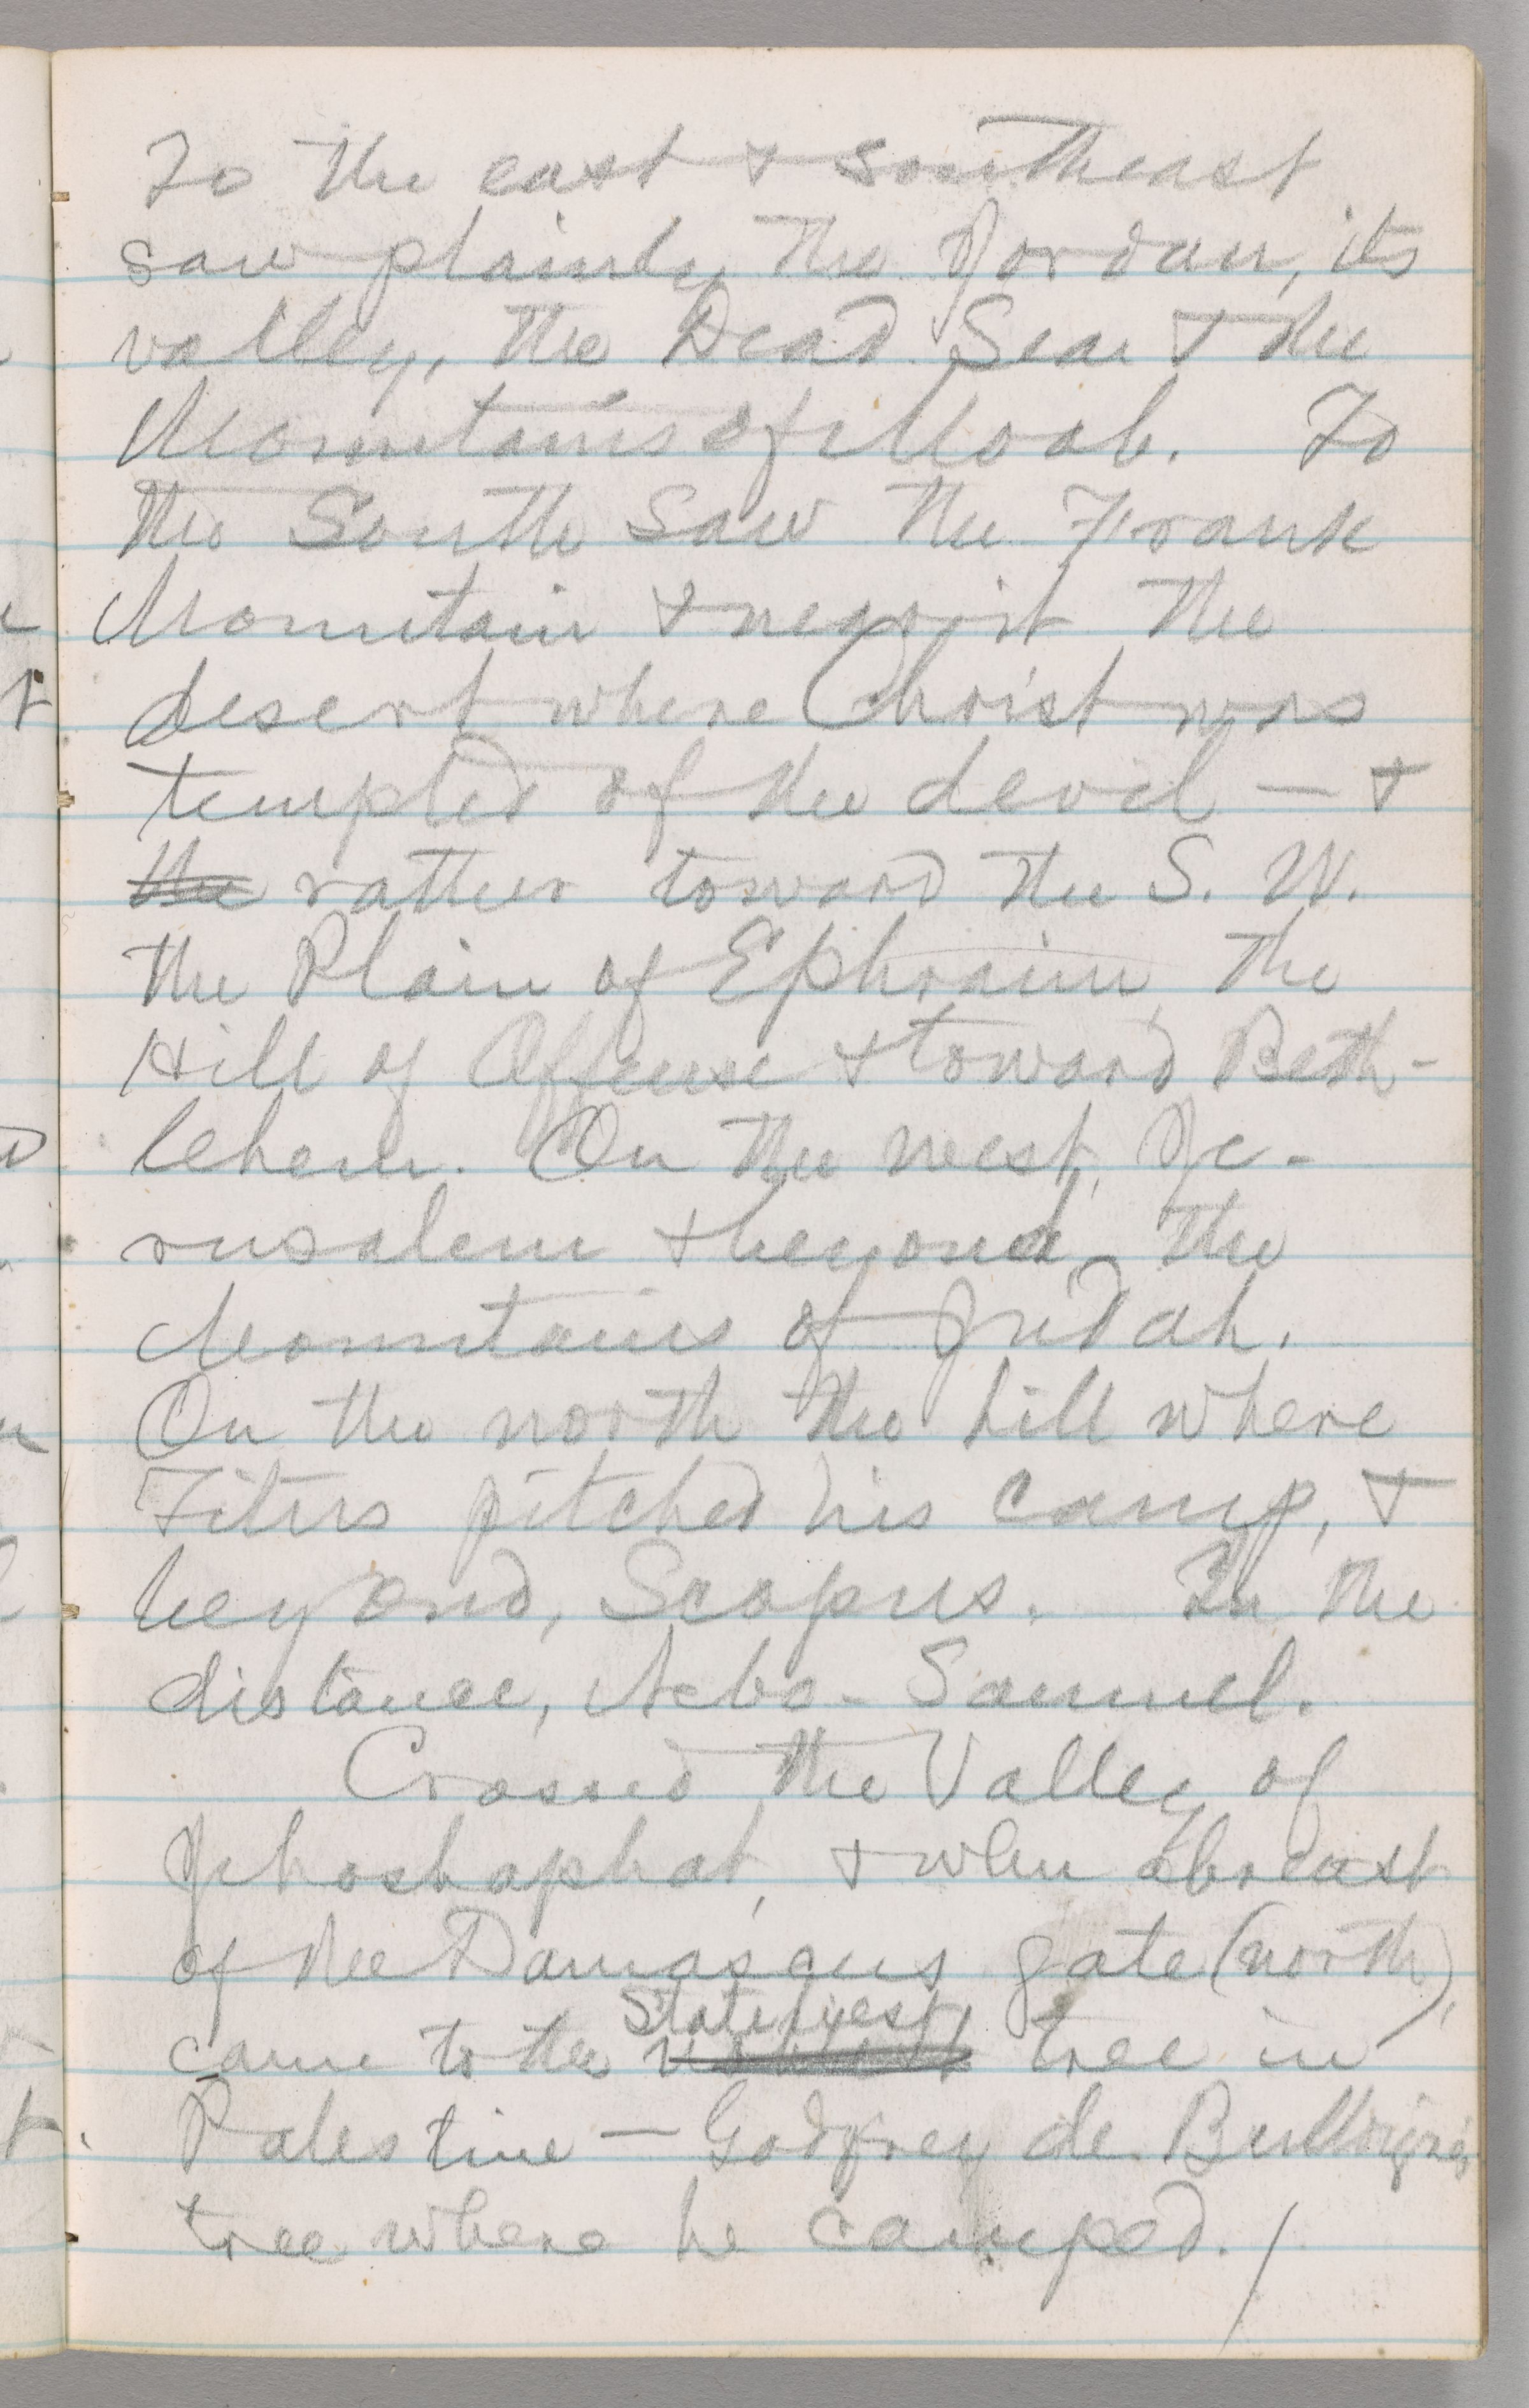 To the east & southeast
saw plainly the Jordan, its
valley, the Dead Sea & the
Mountains of Moab. To
the South saw the Frank
Mountain & the
desert where Christ was
tempted of the devil — &
the rather toward the S. W.
the Plain of Ephraim, the
Hill of Offense & toward Beth-
lehem. On the west, Je-
rusalem & beyond, the
Mountains of Judah.
On the north the hill where
Titus pitched his camp, &
beyond, Scopus. In the
distance, Samuel.
Crossed the Valley of
Jehoshaphat, & when abreast
of the Damascus gate (north),
Stateliest
came to the noblest tree in
Palestine — Godfrey de
tree where he camped. /